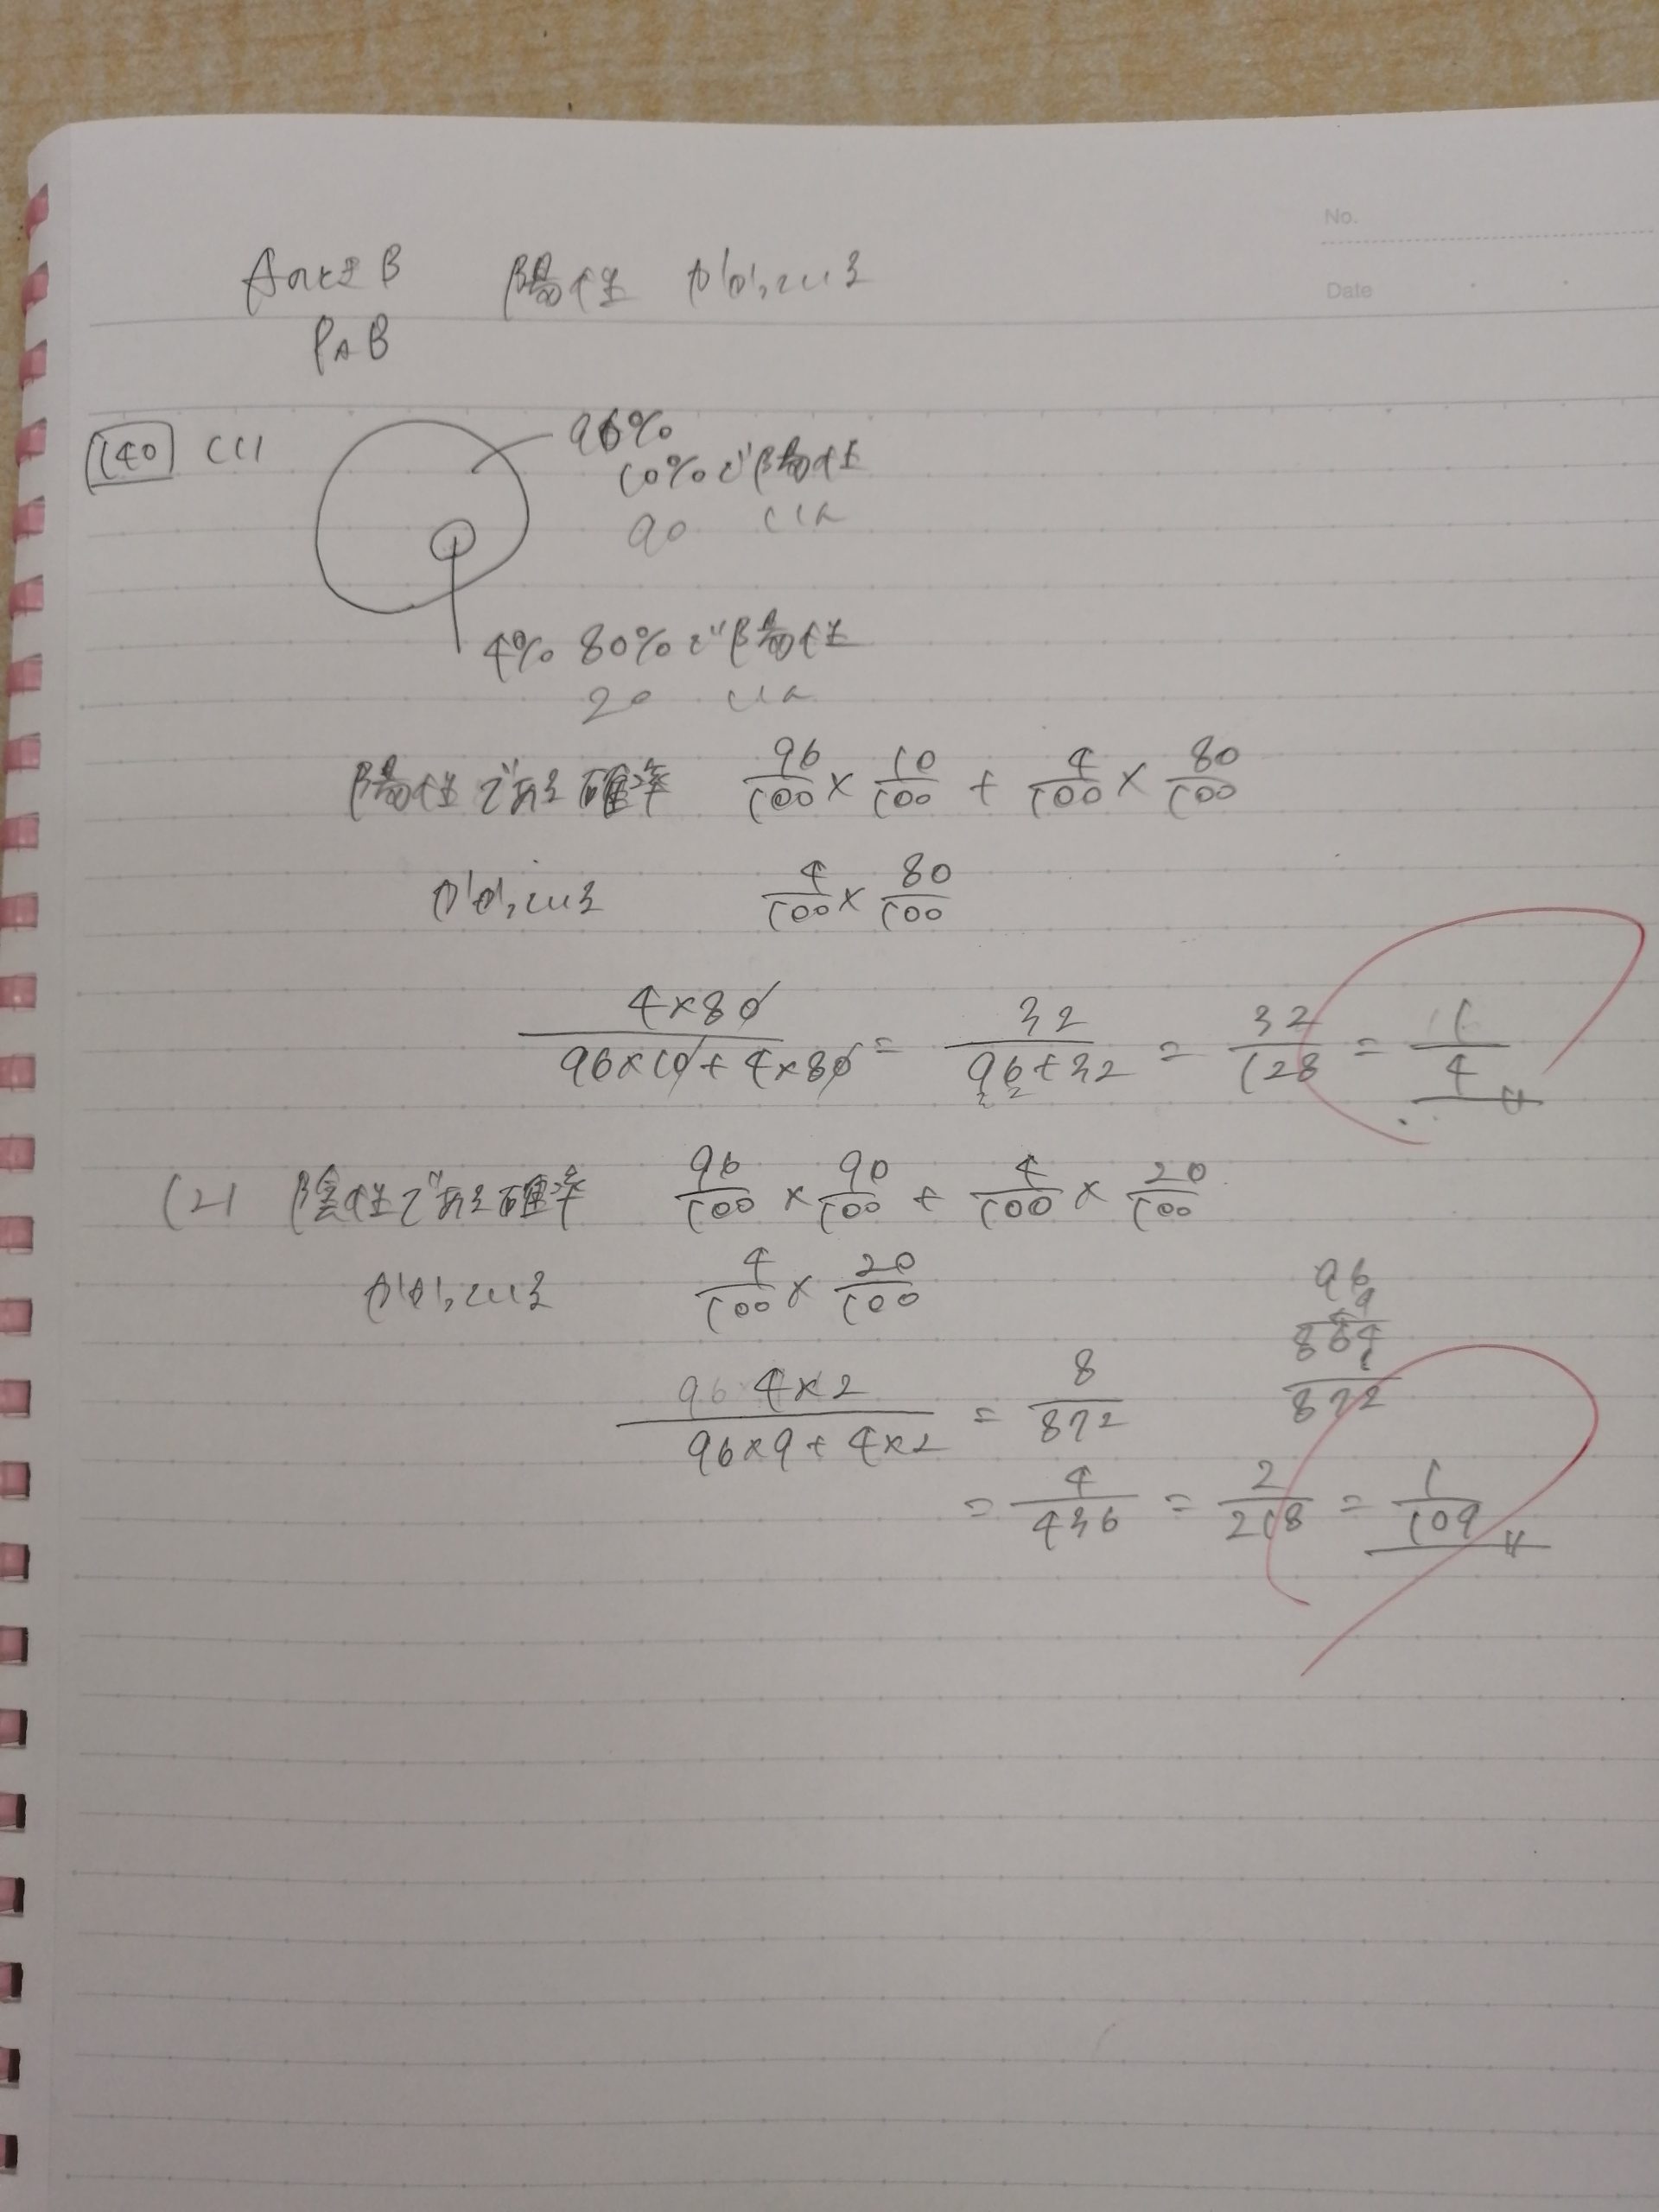 No.
Date
AのときB 陽性 かかっている
P_A B
140 (1) 96%
10%で陽性
90
4% 80%で陽性
20
陽性である確率 96/100 × 10/100 + 4/100 × 80/100
かかっている 4/100 × 80/100
4×80/(96×10+4×80) = 32/(96+32) = 32/128 = 1/4
(2) 陰性である確率 96/100 × 90/100 + 4/100 × 20/100
かかっている 4/100 × 20/100
96
9
864
872
4×2/(96×9+4×2) = 8/872
= 4/436 = 2/218 = 1/109